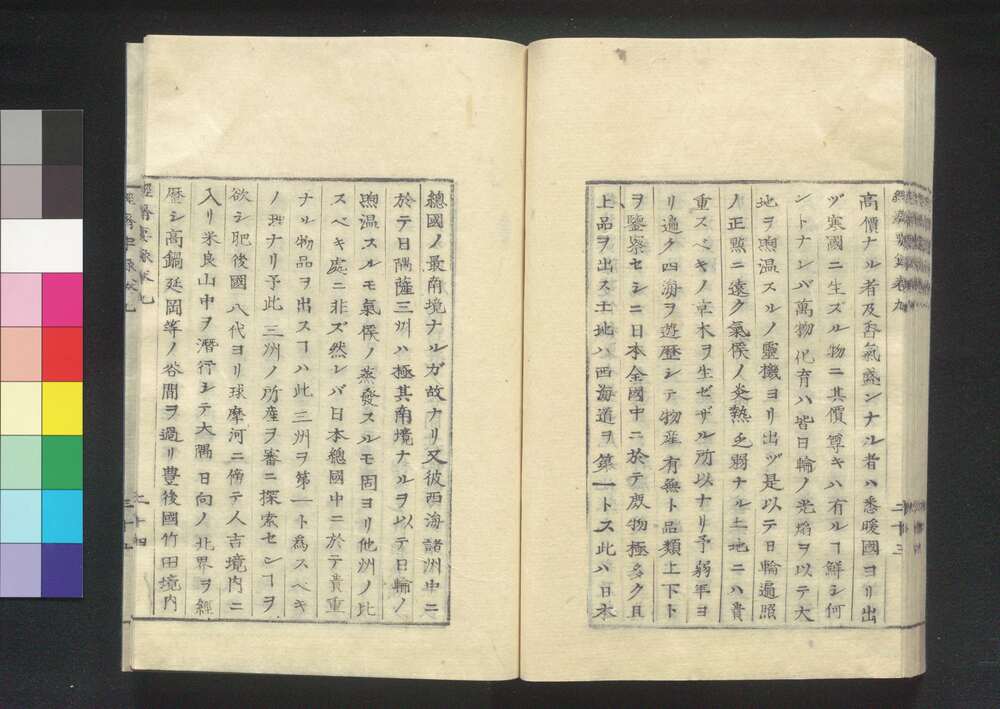 高價ナル者及香氣盛ンナル者ハ悉暖國ヨリ出
ヅ寒國ニ生ズル物ニ其價尊キハ有ルヿ鮮シ何
ントナレバ萬物化育ハ皆日輪ノ光焰ヲ以テ大
地ヲ煦温スルノ靈機ヨリ出ヅ是以テ日輪遍照
ノ正煕ニ遠ク氣候ノ炎熱乏弱ナル土地ニハ貴
重スベキノ草木ヲ生ゼザル所以ナリ予弱年ヨ
リ遍ク四海ヲ遊歷シテ物産有無ト品類上下ト
ヲ鑒察セシニ日本全國中ニ於テ産物極多ク且
上品ヲ出ス土地ハ西海道ヲ第一トス此ハ日本
二十三
總國ノ最南境ナルガ故ナリ又彼西海諸洲中ニ
於テ日隅薩三州ハ極其南境ナルヲ以テ日輪ノ
煦温スルモ氣候ノ蒸發スルモ固ヨリ他洲ノ比
スベキ處ニ非ズ然レバ日本總國中ニ於テ貴重
ナル物品ヲ出スヿハ此三州ヲ第一ト為スベキ
ノ理ナリ予此三州ノ所産ヲ審ニ探索センヿヲ
欲シ肥後國八代ヨリ球摩河ニ傍テ人吉境内ニ
入リ米良山中ヲ潛行シテ大隅日向ノ北界ヲ經
歷シ高鍋延岡等ノ谷間ヲ過リ豐後國竹田境内